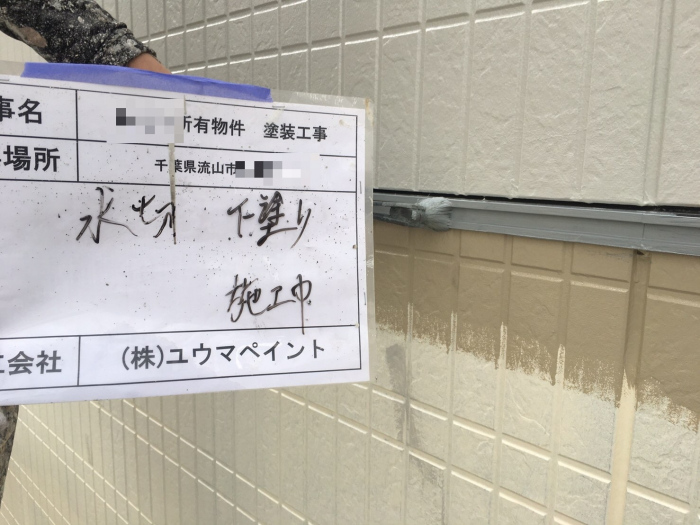 事名 所有物件 塗装工事
場所 千葉県流山市
水切 下塗り
施工中
工会社 (株)ユウマペイント